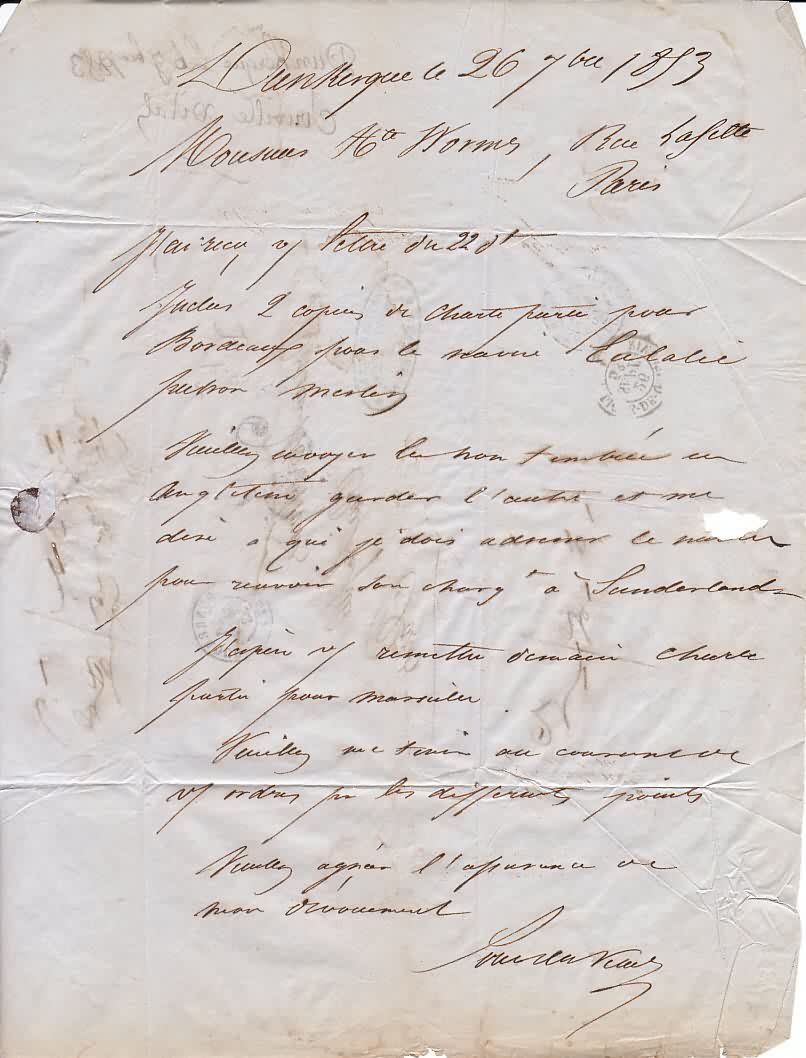 Dunkerque le 26 7bre 1853
Monsieur Hte Worms, Rue Lafitte
Paris
J'ai reçu v/ lettre du 22 ct
Inclus 2 copies de charte partie pour
Bordeaux pour le navire Eulalie
patron Merlin
Veuillez envoyer le non timbrée en
Angleterre garder l'autre et me
dire à qui je dois adresser le navire
pour recevoir son charg t à Sunderland
J'espère v/ remettre demain charte
partie pour Marseille
Veuillez me tenir au courant de
v/ ordres pr les différents points
Veuillez agréer l'assurance de
mon dévouement